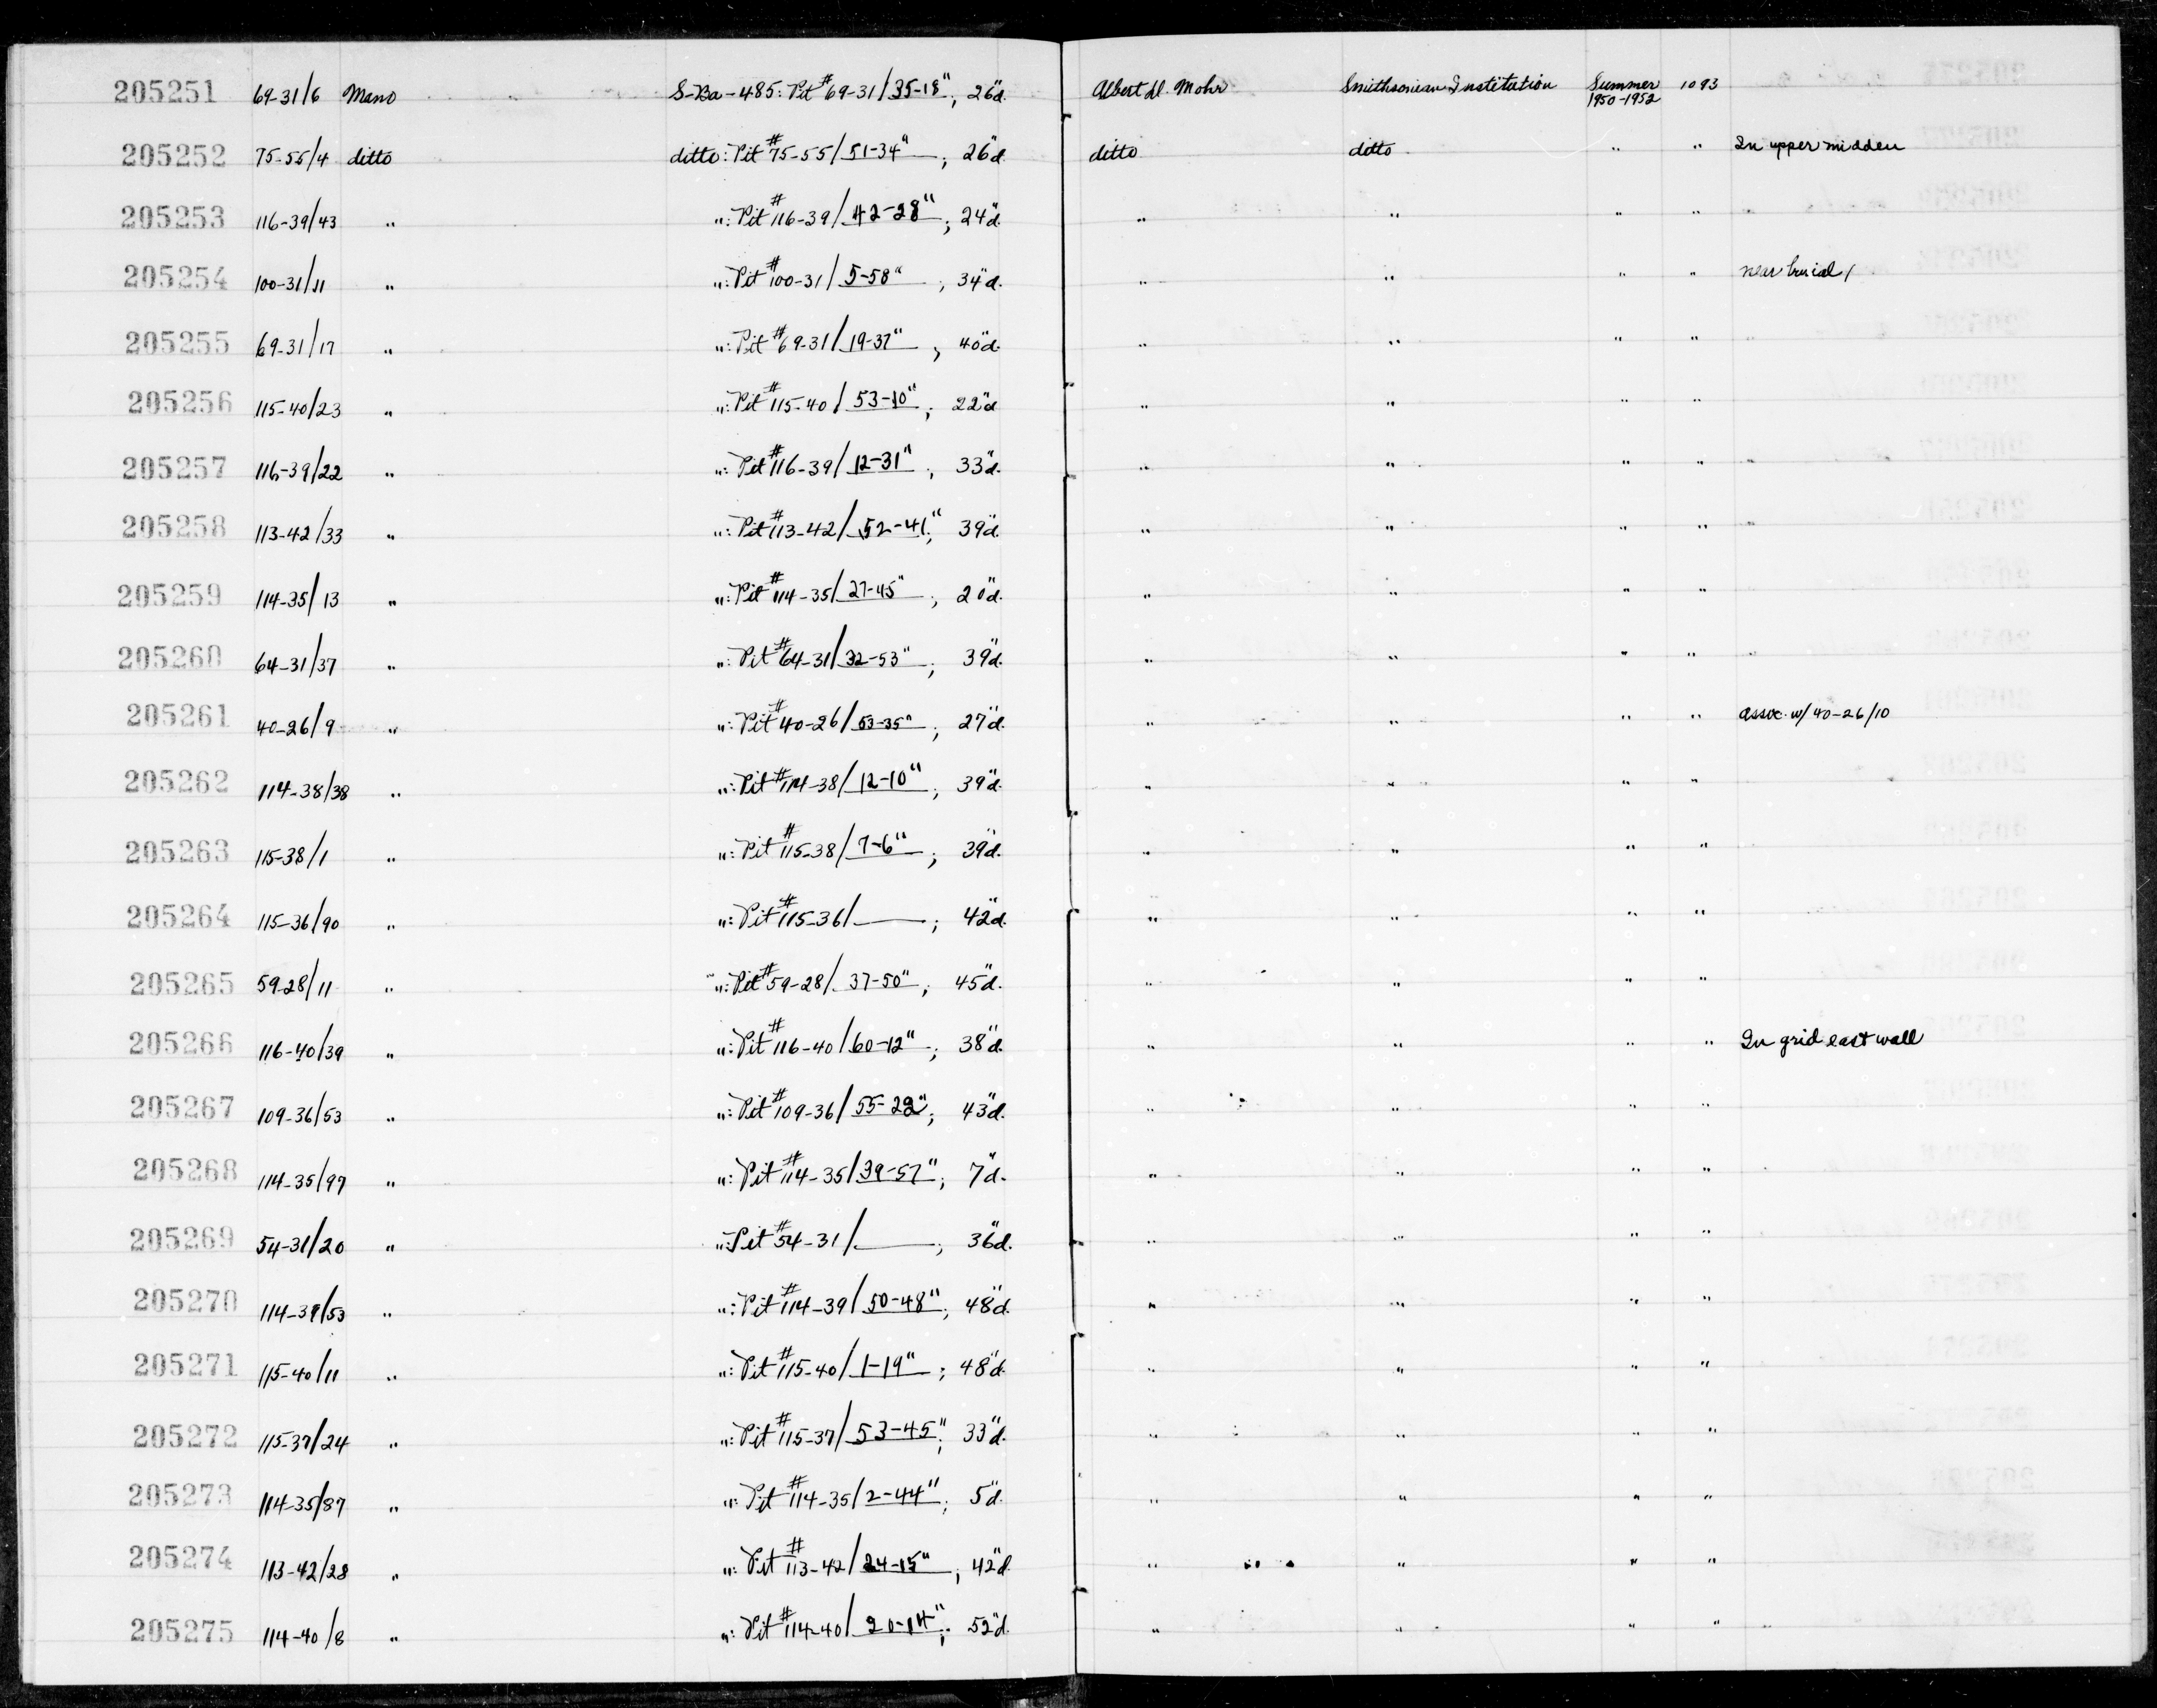 205251 69-31/6 Mano S-Ba-485: Pit #69-31/35-18", 26"d. Albert D. Mohr Smithsonian Institution Summer 1950-1952 1093
205252 75-55/4 ditto ditto: Pit #75-55/51-34"; 26"d. ditto ditto " " In upper midden
205253 116-39/43 " ": Pit #116-39/42-28"; 24"d. " " " "
205254 100-31/11 " ": Pit #100-31/5-58"; 34"d. " " " " near burial 1
205255 69-31/17 " ": Pit #69-31/19-37"; 40"d. " " " "
205256 115-40/23 " ": Pit #115-40/53-10"; 22"d " " " "
205257 116-39/22 " ": Pit #116-39/12-31"; 33"d. " " " "
205258 113-42/33 " ": Pit #113-42/52-41"; 39"d. " " " "
205259 114-35/13 " ": Pit #114-35/27-45"; 20"d. " " " "
205260 64-31/37 " ": Pit #64-31/32-53"; 39"d. " " " "
205261 40-26/9 " ": Pit #40-26/53-35"; 27"d. " " " " assoc. w/ 40-26/10
205262 114-38/38 " ": Pit #114-38/12-10"; 39"d. " " " "
205263 115-38/1 " ": Pit #115-38/7-6"; 39"d. " " " "
205264 115-36/90 " ": Pit #115-36/____; 42"d. " " " "
205265 59-28/11 " ": Pit #59-28/37-50"; 45"d. " " " "
205266 116-40/39 " ": Pit #116-40/60-12"; 38"d. " " " " In grid east wall
205267 109-36/53 " ": Pit #109-36/55-22"; 43"d. " " " "
205268 114-35/97 " ": Pit #114-35/39-57"; 7"d. " " " "
205269 54-31/20 " ": Pit #54-31/____; 36"d. " " " "
205270 114-39/53 " ": Pit #114-39/50-48"; 48"d. " " " "
205271 115-40/11 " ": Pit #115-40/1-19"; 48"d. " " " "
205272 115-37/24 " ": Pit #115-37/53-45"; 33"d. " " " "
205273 114-35/87 " ": Pit #114-35/2-44"; 5"d. " " " "
205274 113-42/28 " ": Pit #113-42/24-15"; 42"d. " " " "
205275 114-40/8 " ": Pit #114-40/20-14"; 52"d. " " " "